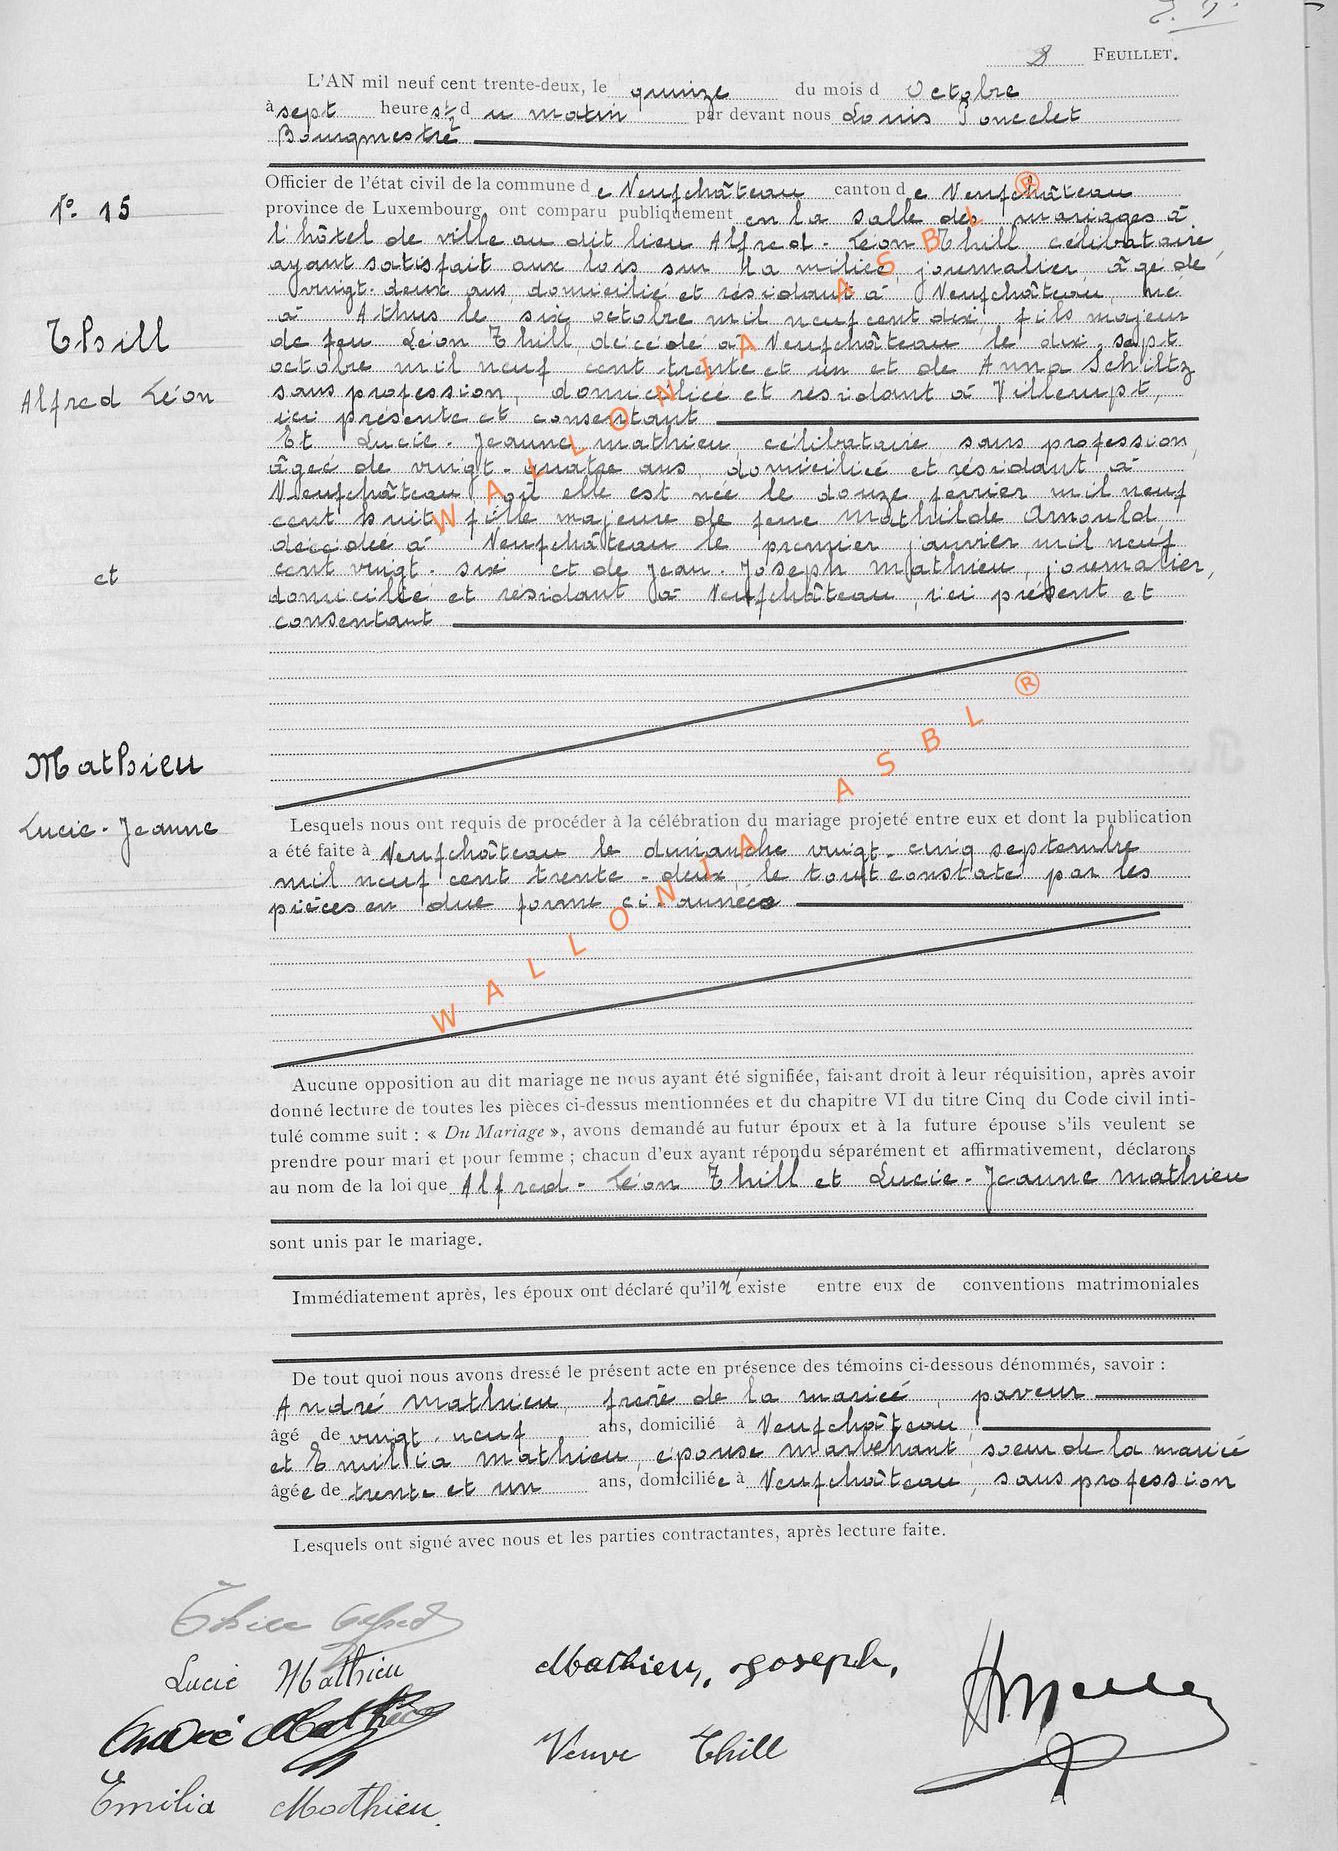 8 FEUILLET.
L'AN mil neuf cent trente-deux, le quinze du mois d Octobre
à sept heures ½ d u matin par devant nous Louis Poncelet
Bourgmestre
Officier de l'état civil de la commune d e Neufchâteau canton d e Neufchâteau
province de Luxembourg, ont comparu publiquement en la salle des mariages à
l'hôtel de ville au dit lieu Alfred-Léon Thill célibataire,
ayant satisfait aux lois sur la milice, journalier, âgé de
vingt-deux ans, domicilié et résidant à Neufchâteau, né
à Athus le six octobre mil neuf cent dix, fils majeur
de feu Léon Thill, décédé à Neufchâteau le dix-sept
octobre mil neuf cent trente et un et de Anna Schiltz
sans profession, domiciliée et résidant à Villerupt,
ici présente et consentant
Et Lucie-Jeanne Mathieu, célibataire sans profession,
âgée de vingt-quatre ans domiciliée et résidant à
Neufchâteau, où elle est née le douze février mil neuf
cent huit, fille majeure de feue Mathilde Arnould,
décédée à Neufchâteau le premier janvier mil neuf
cent vingt-six et de Jean-Joseph Mathieu, journalier,
domicilié et résidant à Neufchâteau, ici présent et
consentant
N° 15
Thill
Alfred Léon
et
Mathieu
Lucie-Jeanne
Lesquels nous ont requis de procéder à la célébration du mariage projeté entre eux et dont la publication
a été faite à Neufchâteau le dimanche vingt-cinq septembre
mil neuf cent trente-deux, le tout constaté par les
pièces en due forme ci-annexées
Aucune opposition au dit mariage ne nous ayant été signifiée, faisant droit à leur réquisition, après avoir
donné lecture de toutes les pièces ci-dessus mentionnées et du chapitre VI du titre Cinq du Code civil inti-
tulé comme suit : « Du Mariage », avons demandé au futur époux et à la future épouse s'ils veulent se
prendre pour mari et pour femme ; chacun d'eux ayant répondu séparément et affirmativement, déclarons
au nom de la loi que Alfred-Léon Thill et Lucie-Jeanne Mathieu
sont unis par le mariage.
Immédiatement après, les époux ont déclaré qu'il n'existe entre eux de conventions matrimoniales
De tout quoi nous avons dressé le présent acte en présence des témoins ci-dessous dénommés, savoir :
André Mathieu, frère de la mariée, paveur
âgé de vingt-neuf ans, domicilié à Neufchâteau,
et Emilia Mathieu, épouse Marchant, soeur de la mariée
âgée de trente et un ans, domiciliée à Neufchâteau, sans profession
Lesquels ont signé avec nous et les parties contractantes, après lecture faite.
Thill Alfred
Lucie Mathieu
Mathieu, Joseph,
André Mathieu
Veuve Thill
Emilia Mathieu
WALLONIA ASBL ®
WALLONIA ASBL ®